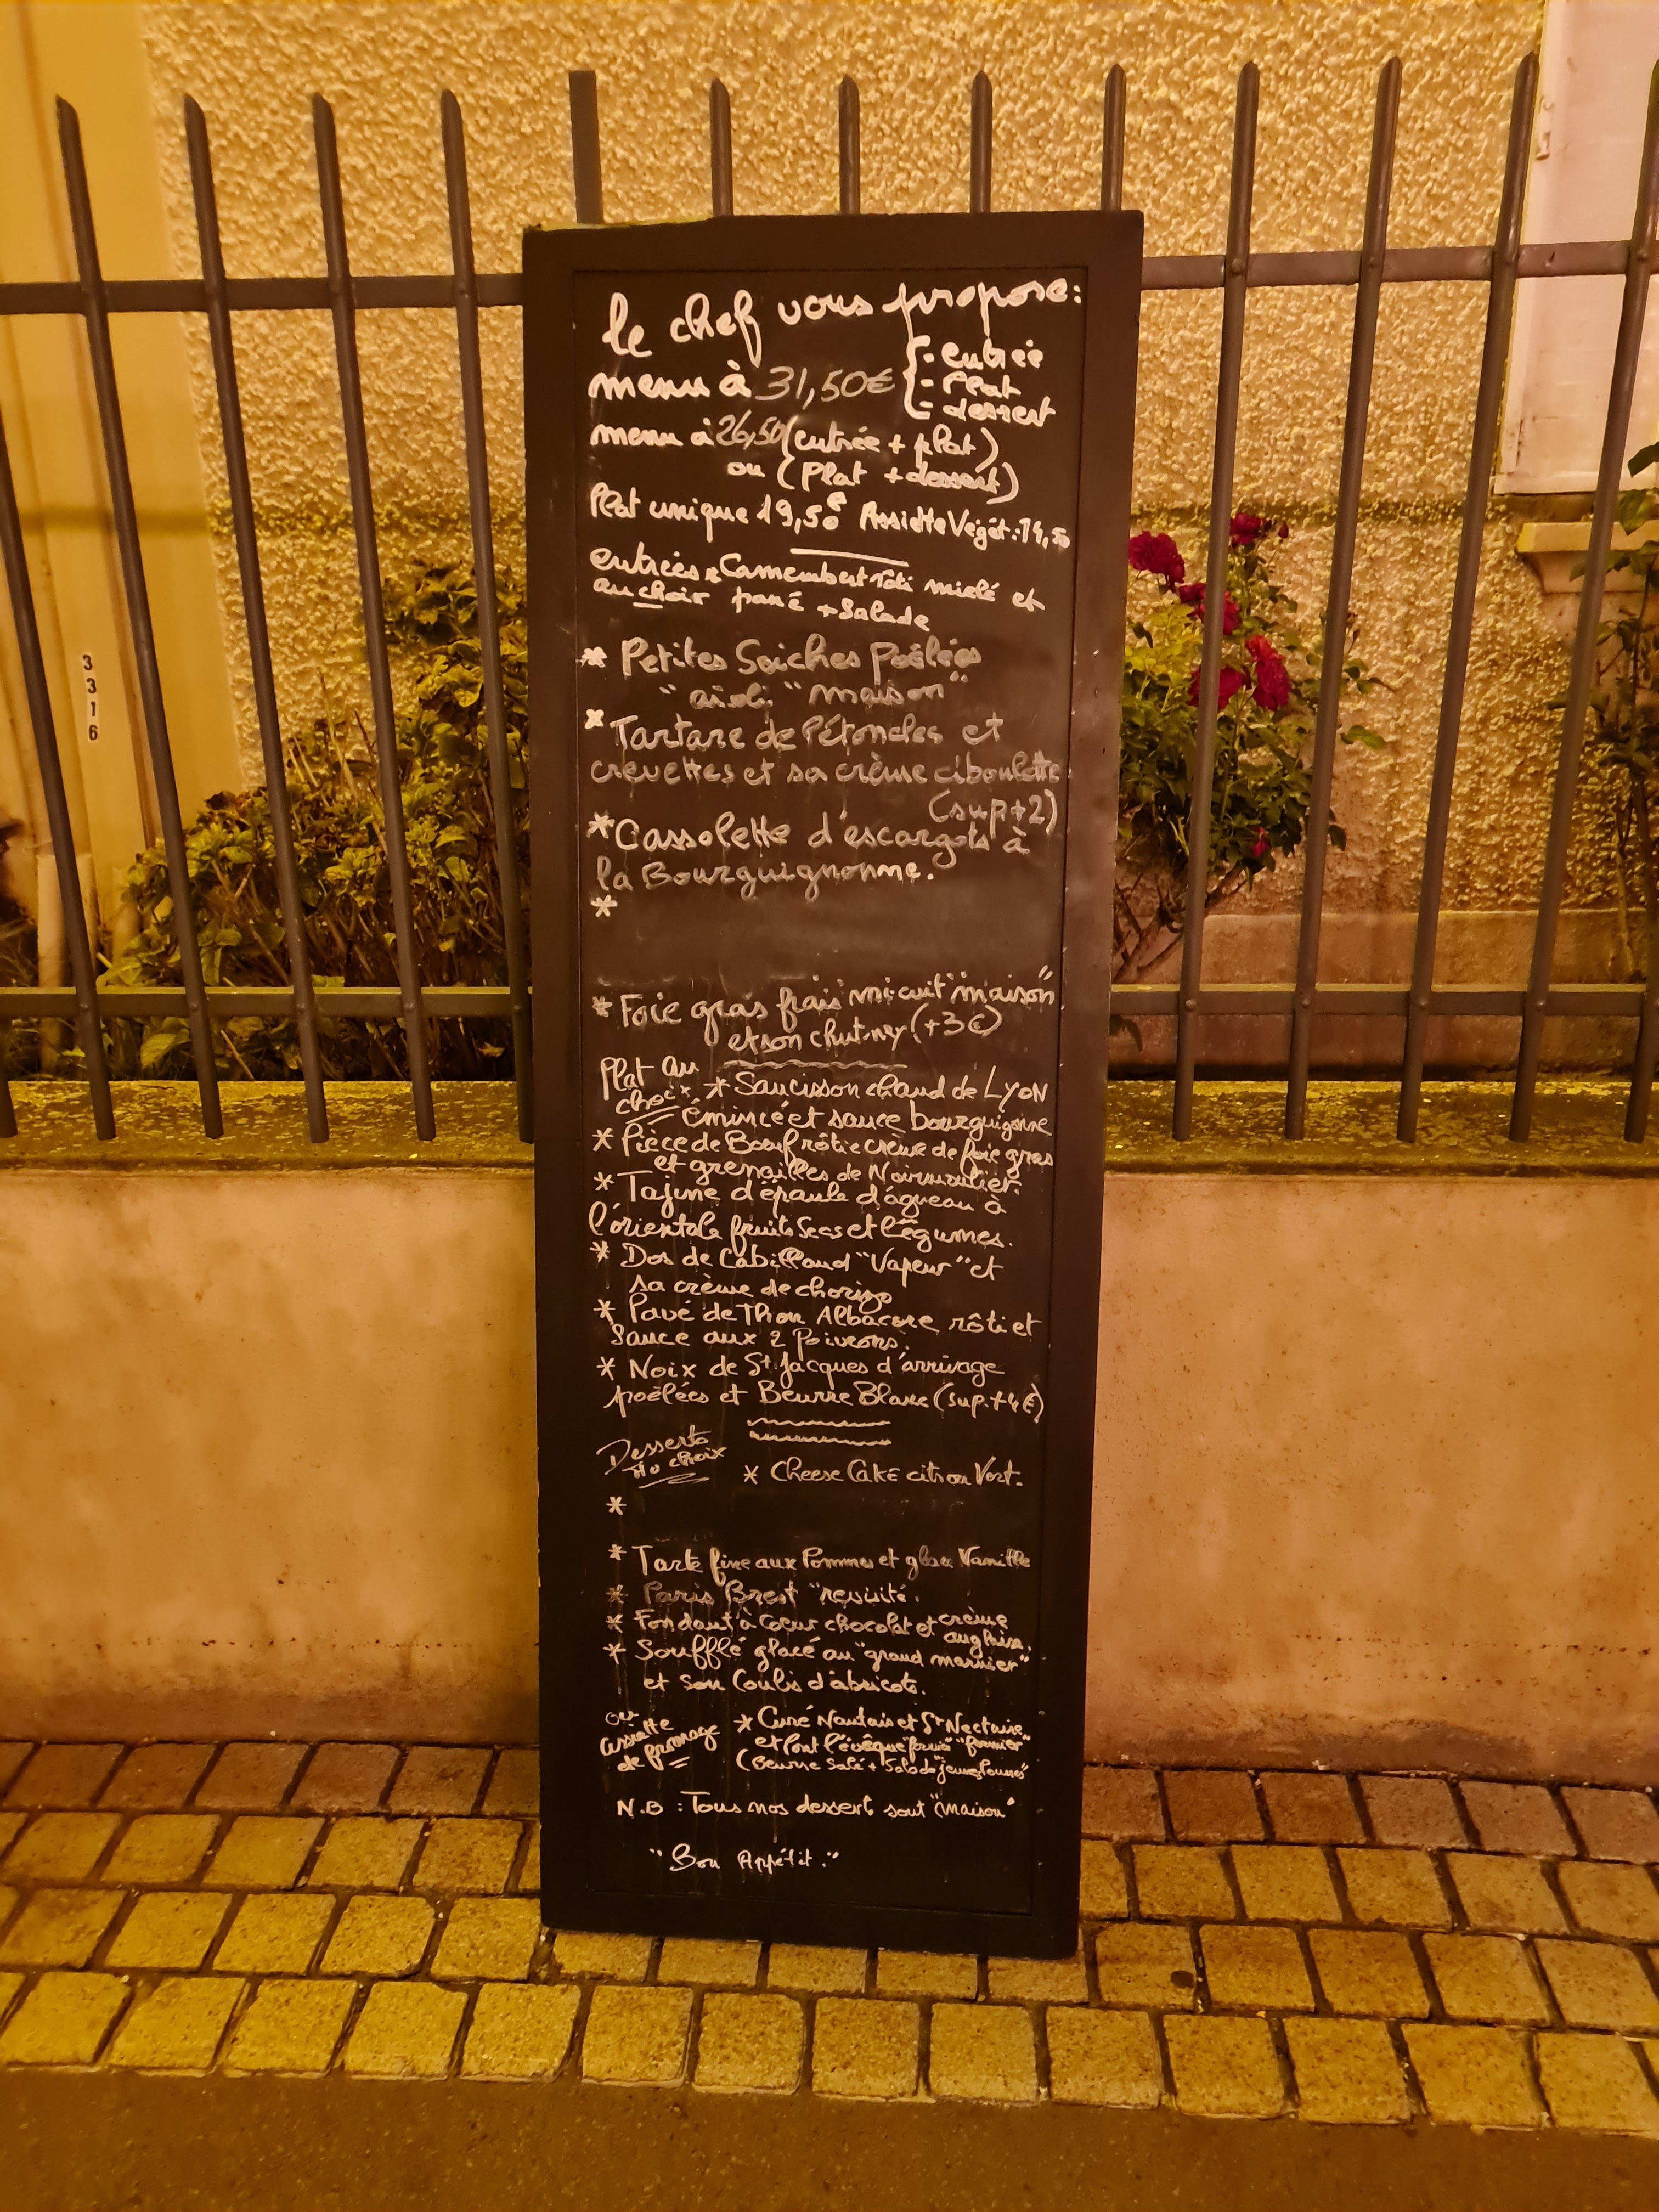 le chef vous propose:
menu à 31,50€ { - entrée
- Plat
- dessert
menu à 26,50 (entrée + plat)
ou (Plat + dessert)
Plat unique 19,50€ Assiette Végét.:14,50
entrées * Camembert rôti miélé et
au choix pané + Salade
* Petites Seiches Poêlées
"aïoli "maison"
* Tartare de Pétoncles et
crevettes et sa crème ciboulette
(sup+2)
* Cassolette d'escargots à
la Bourguignonne.
*
* Foie gras frais mi cuit "maison"
et son chutney (+3€)
Plat au
choix * Saucisson chaud de LYON
émincé et sauce bourguignonne
* Pièce de Boeuf rôtie crème de foie gras
et grenailles de Noirmoutier.
* Tajine d'épaule d'agneau à
l'orientale fruits Secs et légumes.
* Dos de Cabillaud "Vapeur" et
sa crème de chorizo
* Pavé de Thon Albacore rôti et
Sauce aux 2 Poivrons.
* Noix de St Jacques d'arrivage
poêlées et Beurre Blanc (sup.+4€)
Desserts
Au choix * Cheese CaKE citron Vert.
*
* Tarte fine aux Pommes et glace Vanille
* Paris Brest "revisité.
* Fondant à Coeur chocolat et crème
anglaise.
* Soufflé glacé au "grand marnier"
et son Coulis d'abricots.
ou
assiette
de fromage * Curé Nantais et St Nectaire
et Pont l'évêque "fermier"
(Beurre Salé + Salade "jeunes Pousses"
N.B : Tous nos desserts sont "maison"
"Bon Appétit."
3316